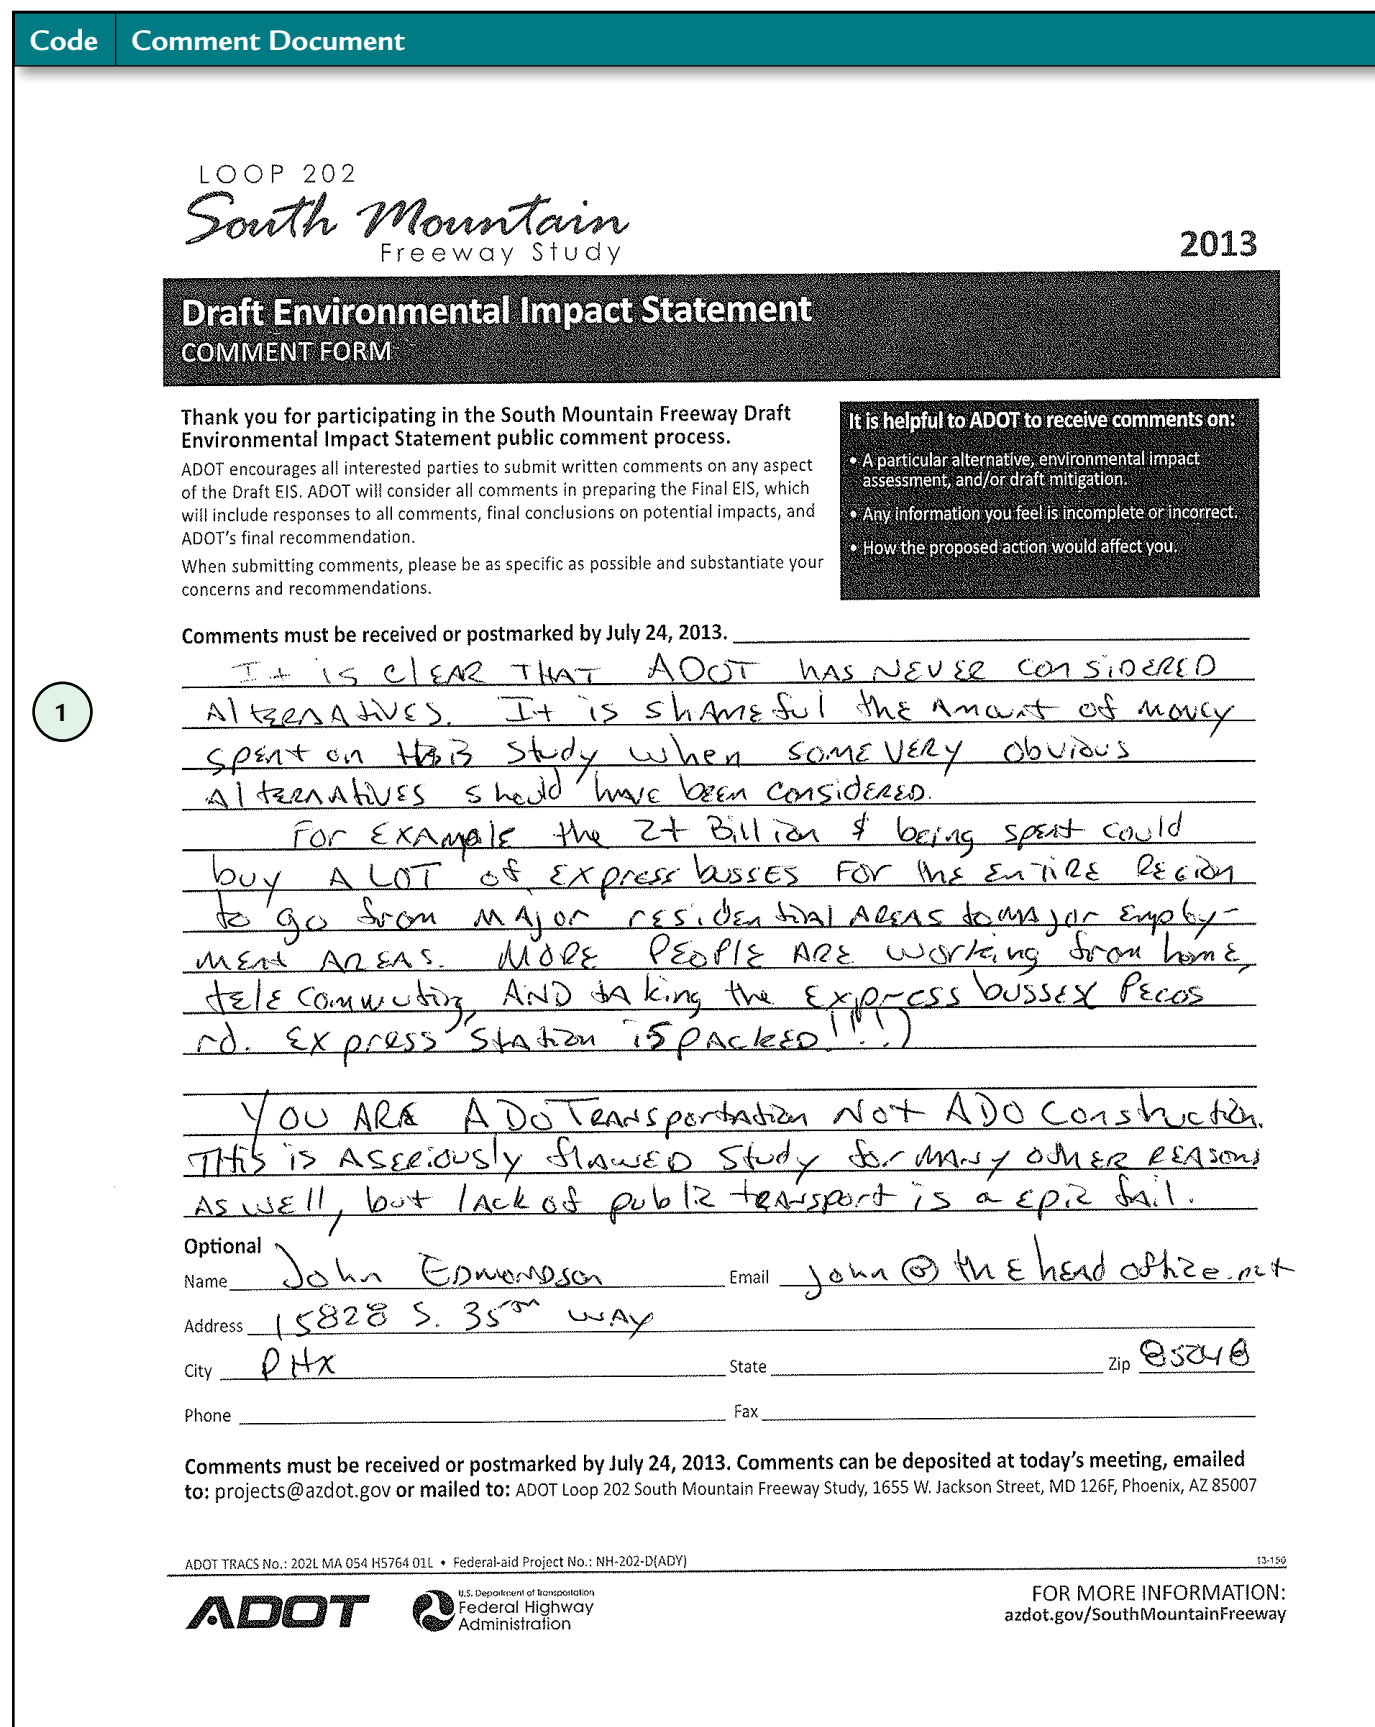 Code Comment Document
LOOP 202
South Mountain
Freeway Study
2013
Draft Environmental Impact Statement
COMMENT FORM
Thank you for participating in the South Mountain Freeway Draft
Environmental Impact Statement public comment process.
ADOT encourages all interested parties to submit written comments on any aspect
of the Draft EIS. ADOT will consider all comments in preparing the Final EIS, which
will include responses to all comments, final conclusions on potential impacts, and
ADOT's final recommendation.
When submitting comments, please be as specific as possible and substantiate your
concerns and recommendations.
It is helpful to ADOT to receive comments on:
• A particular alternative, environmental impact
assessment, and/or draft mitigation.
• Any information you feel is incomplete or incorrect.
• How the proposed action would affect you.
Comments must be received or postmarked by July 24, 2013.
It is clEAR THAT ADOT hAS NEVER conSiDERED
1
AlteRNAtiVES. It is shAMEful thE AmounT of moNey
spent on this Study when SOME VERY obvious
AlteRNAtiVES should have been ConSiDERED.
For EXAmple the 2+ Billion $ being spent could
buy A LOT of Express bussES For the EnTiRE REGion
to go from MAjor residential AREAS to major Employ-
ment AREAS. MORE PEOPlE ARE working from home,
telecommuting, AND tAking the Express bussES( Pecos
rd. Express Station is PACkED!!!!)
YOU ARE ADOTRANSportation Not ADO Construction.
THis is A SERiOUSly flAWED Study for MANy OTHER REASons
AS WEll, but lAck of public tRANsport is a Epic fail.
Optional
Name John EDmonDson Email john@thEheadoffice.net
Address 15828 S. 35th WAY
City PHX State Zip 85048
Phone Fax
Comments must be received or postmarked by July 24, 2013. Comments can be deposited at today's meeting, emailed
to: projects@azdot.gov or mailed to: ADOT Loop 202 South Mountain Freeway Study, 1655 W. Jackson Street, MD 126F, Phoenix, AZ 85007
ADOT TRACS No.: 202L MA 054 H5764 01L • Federal-aid Project No.: NH-202-D(ADY)
13-150
ADOT
U.S. Department of Transportation
Federal Highway
Administration
FOR MORE INFORMATION:
azdot.gov/SouthMountainFreeway